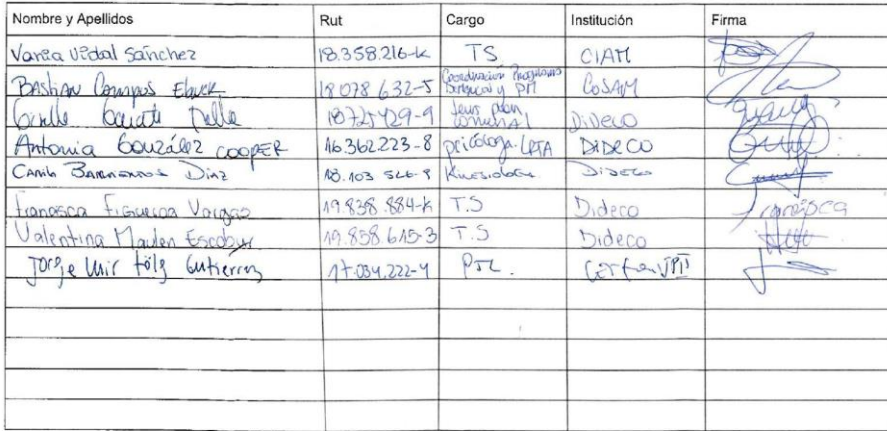 Nombre y Apellidos Rut Cargo Institución Firma
Vania Vidal Sánchez 18.358.216-K TS CIAM
Bastian Campos 18078632-5 Coordinación Programas y PM COSAM
18725429-9 comunal Dideco
Antonia González Cooper 16.362.223-8 psicóloga DIDECO
Camila Barrientos Díaz 18.103 Kinesióloga Dideco
Francisca Figueroa Vargas 19.838.884-K T.S Dideco Francisca
Valentina Maulen Escobar 19.858.615-3 T.S Dideco
Jorge Luis Gutierrez 17.034.222-4